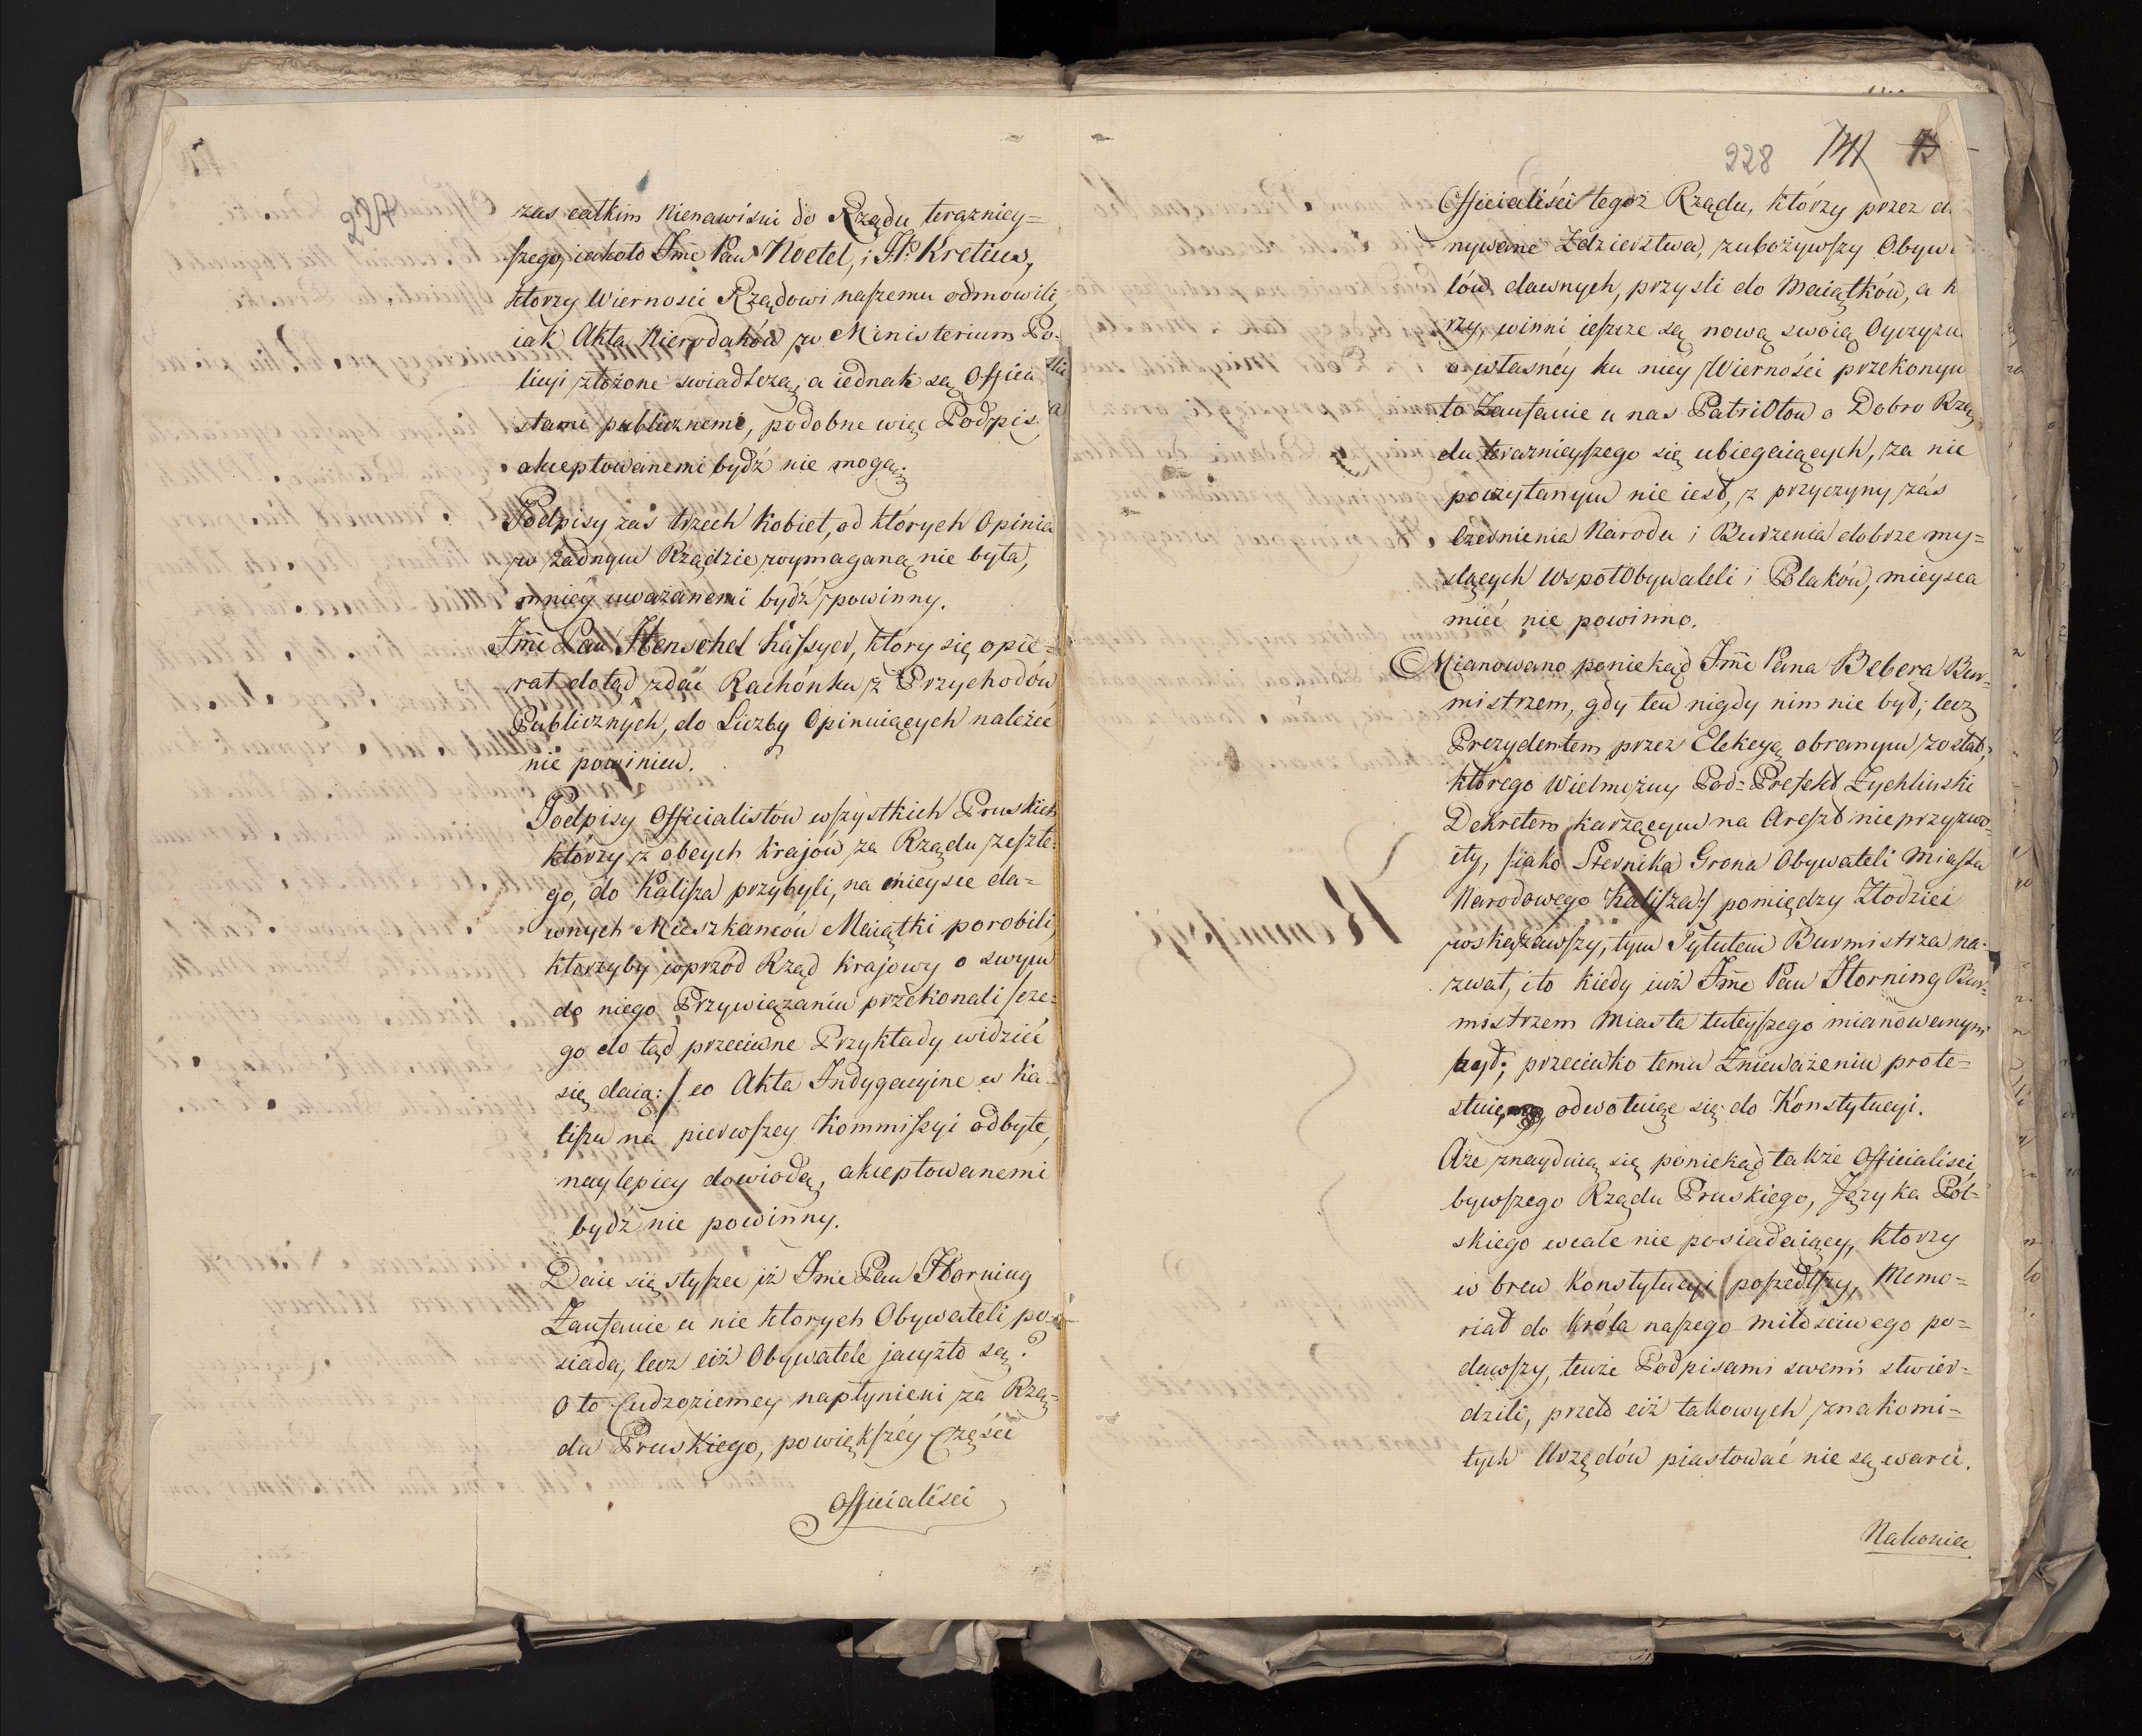 227
zas całkim Nienawiśni do Rządu terazniey=
szego, iakoto Jmć Pan Noetel, i J.P. Kretius,
ktorzy Wiernosci Rządowi naszemu odmowili,
iak Akta Nierodaków w Ministerium Po-
licyi złożone swiadszczą, a iednak są Officia
istami publicznemi, podobne więc Podpis
akceptowanemi bydź nie mogą.
Podpisy zaś trzech kobiet, od których Opinia
w żadnym Rządzie wymaganą nie była,
mniéy uważanemi bydź powinny.
Jmć Pan Henschel Kassyer, ktory się opie=
rał dotąd zdać Rachónku z Przychodów
Publicznych, do Liczby Opiniuiących należeć
nie powinien.
Podpisy Officialistów wszystkich Pruskich
którzy z obcych krajów za Rządu zeszłe=
go, do Kalisza przybyli, na mieysce da=
wnych Mieszkańców Maiątki porobili,
ktorzyby wprzód Rząd krajowy o swym
do niego Przywiązaniu przekonali /:cze=
go do tąd przeciwne Przykłady widzieć
się daią:/ co Akta Indygacyjne w Ka=
liszu na pierwszey Kommissyi odbyte,
naylepiey dowiodą, akceptowanemi
bydź nie powinny.
Daie się słyszeć iż Jmć Pan Horning
Zaufanie u nie ktorych Obywateli po=
siada, lecz ciż Obywatele jacyżto są?
Oto Cudzoziemcy napłynieni za Rzą=
du Pruskiego, powiększéy Części
Officialisci
228 141 75
Officialiści tegoż Rządu, którzy przez
nywane Zdzierstwa, zubożywszy Obyw
lów dawnych, przyśli do Maiątków, a k
rzy, winni ieszcze są nową swoią Oyczyzn
o własnéy ku niéy Wierności przekonyw
to Zaufanie u nas PatriOtow o Dobro Rzą
du teraznieyszego się ubiegaiących, za nie
poczytanym nie iest, z przyczyny zaś
Czernienia Narodu i Burzenia dobrze my=
slących WspołObywateli i Polaków, mieysca
mieć nie powinno.
Mianowano poniekąd Jmć Pana Bebera Bur=
mistrzem, gdy ten nigdy nim nie był, lecz
Prezydentem przez Elekcyą obranym został,
którego Wielmożny Pod=Prefekt Żychlinski
Dekretem karzącym na Areszt nieprzyzwo=
ity, /:iako Sternika Grona Obywateli Miasta
Narodowego Kalisza:/ pomiędzy Złodziei
wskazawszy, tym Tytułem Burmistrza na=
zwał, i to kiedy iuż Jmć Pan Horning Bur=
mistrzem Miasta tuteyszego mianowanym
był; przeciwko temu Znieważeniu prote=
stuię, odwołuięc się do Konstytucyi.
Aże znayduią się poniekąd także Officialisci
bywszego Rządu Pruskiego, Języka Pol=
skiego wcale nie posiadaiący, ktorzy
w brew Konstytucyi poszedłszy, Memo=
riał do Króla naszego miłościwego po=
dawszy, tenże Podpisami swemi stwier=
dzili, przeto ciż takowych znakomi=
tych Urzędów piastować nie są warci.
Nakoniec